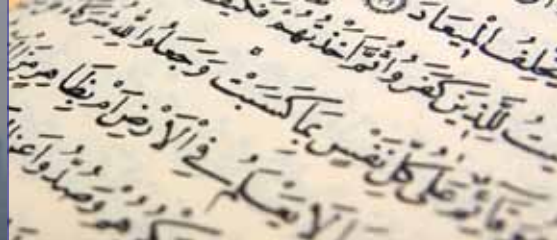 يُخْلِفُ الْمِيعَادَ
لِلَّذِينَ كَفَرُوا ثُمَّ أَخَذْتُهُمْ فَكَيْفَ
قَائِمٌ عَلَىٰ كُلِّ نَفْسٍ بِمَا كَسَبَتْ وَجَعَلُوا لِلَّهِ شُرَكَاءَ
لَا يَعْلَمُ فِي الْأَرْضِ أَمْ بِظَاهِرٍ مِنَ
وَصُدُّوا عَنِ